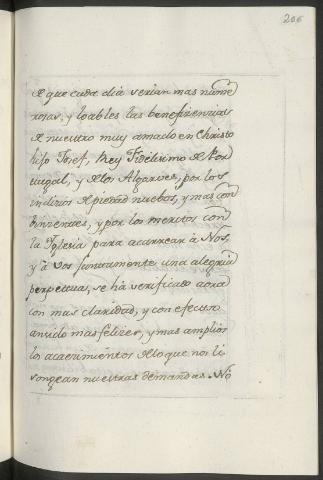 206
de que cada dia verian mas nume
rosas, y loables las beneficencias
de nuestro muy amado en Christo
hijo Josef, Rey Fidelisimo de Por
tugal, y de los Algarves, por los
indizios de piedad nuebos, y mas con
binzentes, y por los meritos con
la Yglesia para acarrear à Nos,
y à vos juntamente una alegria
perpetua, se hà verificado aora
con mas claridad, y con efecto
ansido mas felizes, y mas amplios
los acaecimientos de lo que nos li
songean nuestras demandas. No